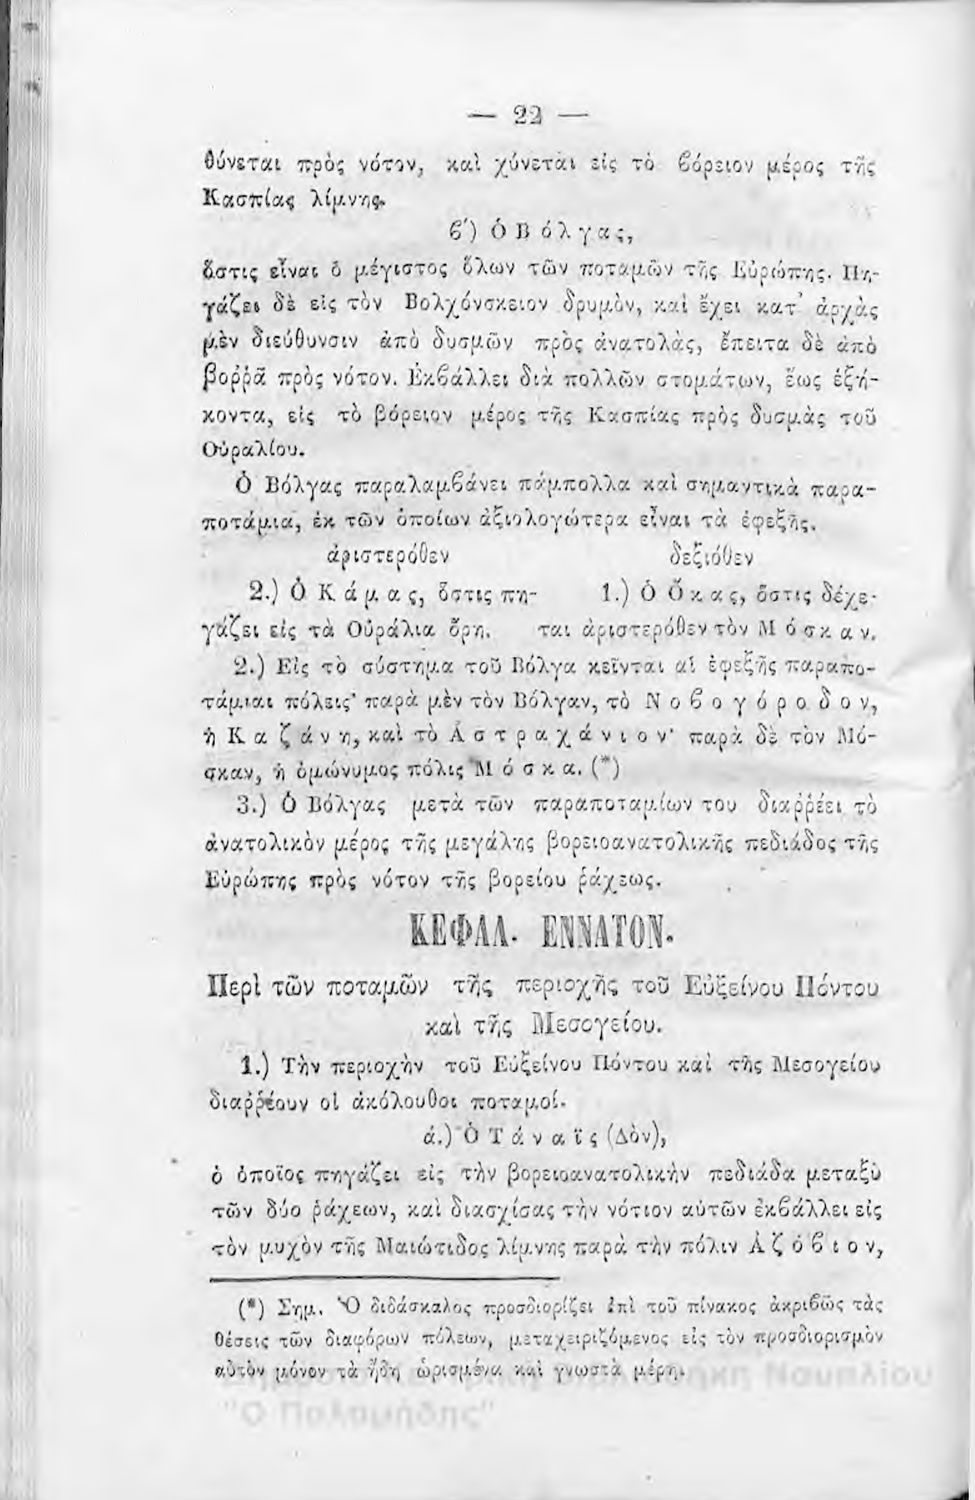 — 22 —
θύνεται πρὸς νότον, καὶ χύνεται εἰς τὸ βόρειον μέρος τῆς
Κασπίας λίμνης.
ϐ′) Ὁ Βόλγας,
ὅστις εἶναι ὁ μέγιστος ὅλων τῶν ποταμῶν τῆς Εὐρώπης. Πη-
γάζει δὲ εἰς τὸν Βολχόνσκειον δρυμὸν, καὶ ἔχει κατ' ἀρχὰς
μὲν διεύθυνσιν ἀπὸ δυσμῶν πρὸς ἀνατολὰς, ἔπειτα δὲ ἀπὸ
βορρᾶ πρὸς νότον. Ἐκϐάλλει διὰ πολλῶν στομάτων, ἕως ἑξή-
κοντα, εἰς τὸ βόρειον μέρος τῆς Κασπίας πρὸς δυσμὰς τοῦ
Οὐραλίου.
Ὁ Βόλγας παραλαμϐάνει πάμπολλα καὶ σημαντικὰ παρα-
ποτάμια, ἐκ τῶν ὁποίων ἀξιολογώτερα εἶναι τὰ ἐφεξῆς.
ἀριστερόθεν δεξιόθεν
2.) Ὁ Κάμας, ὅστις πη- 1.) Ὁ Ὄκας, ὅστις δέχε-
γάζει εἰς τὰ Οὐράλια ὄρη. ται ἀριστερόθεν τὸν Μόσκαν.
2.) Εἰς τὸ σύστημα τοῦ Βόλγα κεῖνται αἱ ἐφεξῆς παραπο-
τάμιαι πόλεις· παρὰ μὲν τὸν Βόλγαν, τὸ Νοϐογόροδον,
ἡ Καζάνη, καὶ τὸ Ἀστραχάνιον· παρὰ δὲ τὸν Μό-
σκαν, ἡ ὁμώνυμος πόλις Μόσκα. (*)
3.) Ὁ Βόλγας μετὰ τῶν παραποταμίων του διαῤῥέει τὸ
ἀνατολικὸν μέρος τῆς μεγάλης βορειοανατολικῆς πεδιάδος τῆς
Εὐρώπης πρὸς νότον τῆς βορείου ῥάχεως.
ΚΕΦΑΛ. ΕΝΝΑΤΟΝ.
Περὶ τῶν ποταμῶν τῆς περιοχῆς τοῦ Εὐξείνου Πόντου
καὶ τῆς Μεσογείου.
1.) Τὴν περιοχὴν τοῦ Εὐξείνου Πόντου καὶ τῆς Μεσογείου
διαῤῥέουν οἱ ἀκόλουθοι ποταμοί.
ά.) Ὁ Τάναϊς (Δὸν),
ὁ ὁποῖος πηγάζει εἰς τὴν βορειοανατολικὴν πεδιάδα μεταξὺ
τῶν δύο ῥάχεων, καὶ διασχίσας τὴν νότιον αὐτῶν ἐκϐάλλει εἰς
τὸν μυχὸν τῆς Μαιώτιδος λίμνης παρὰ τὴν πόλιν Ἀζόϐιον,
(*) Σημ. Ὁ διδάσκαλος προσδιορίζει ἐπὶ τοῦ πίνακος ἀκριϐῶς τὰς
θέσεις τῶν διαφόρων πόλεων, μεταχειριζόμενος εἰς τὸν προσδιορισμὸν
αὐτὸν μόνον τὰ ἤδη ὡρισμένα καὶ γνωστὰ μέρη.
Ναυπλίου
"Ο Παλαμήδης"